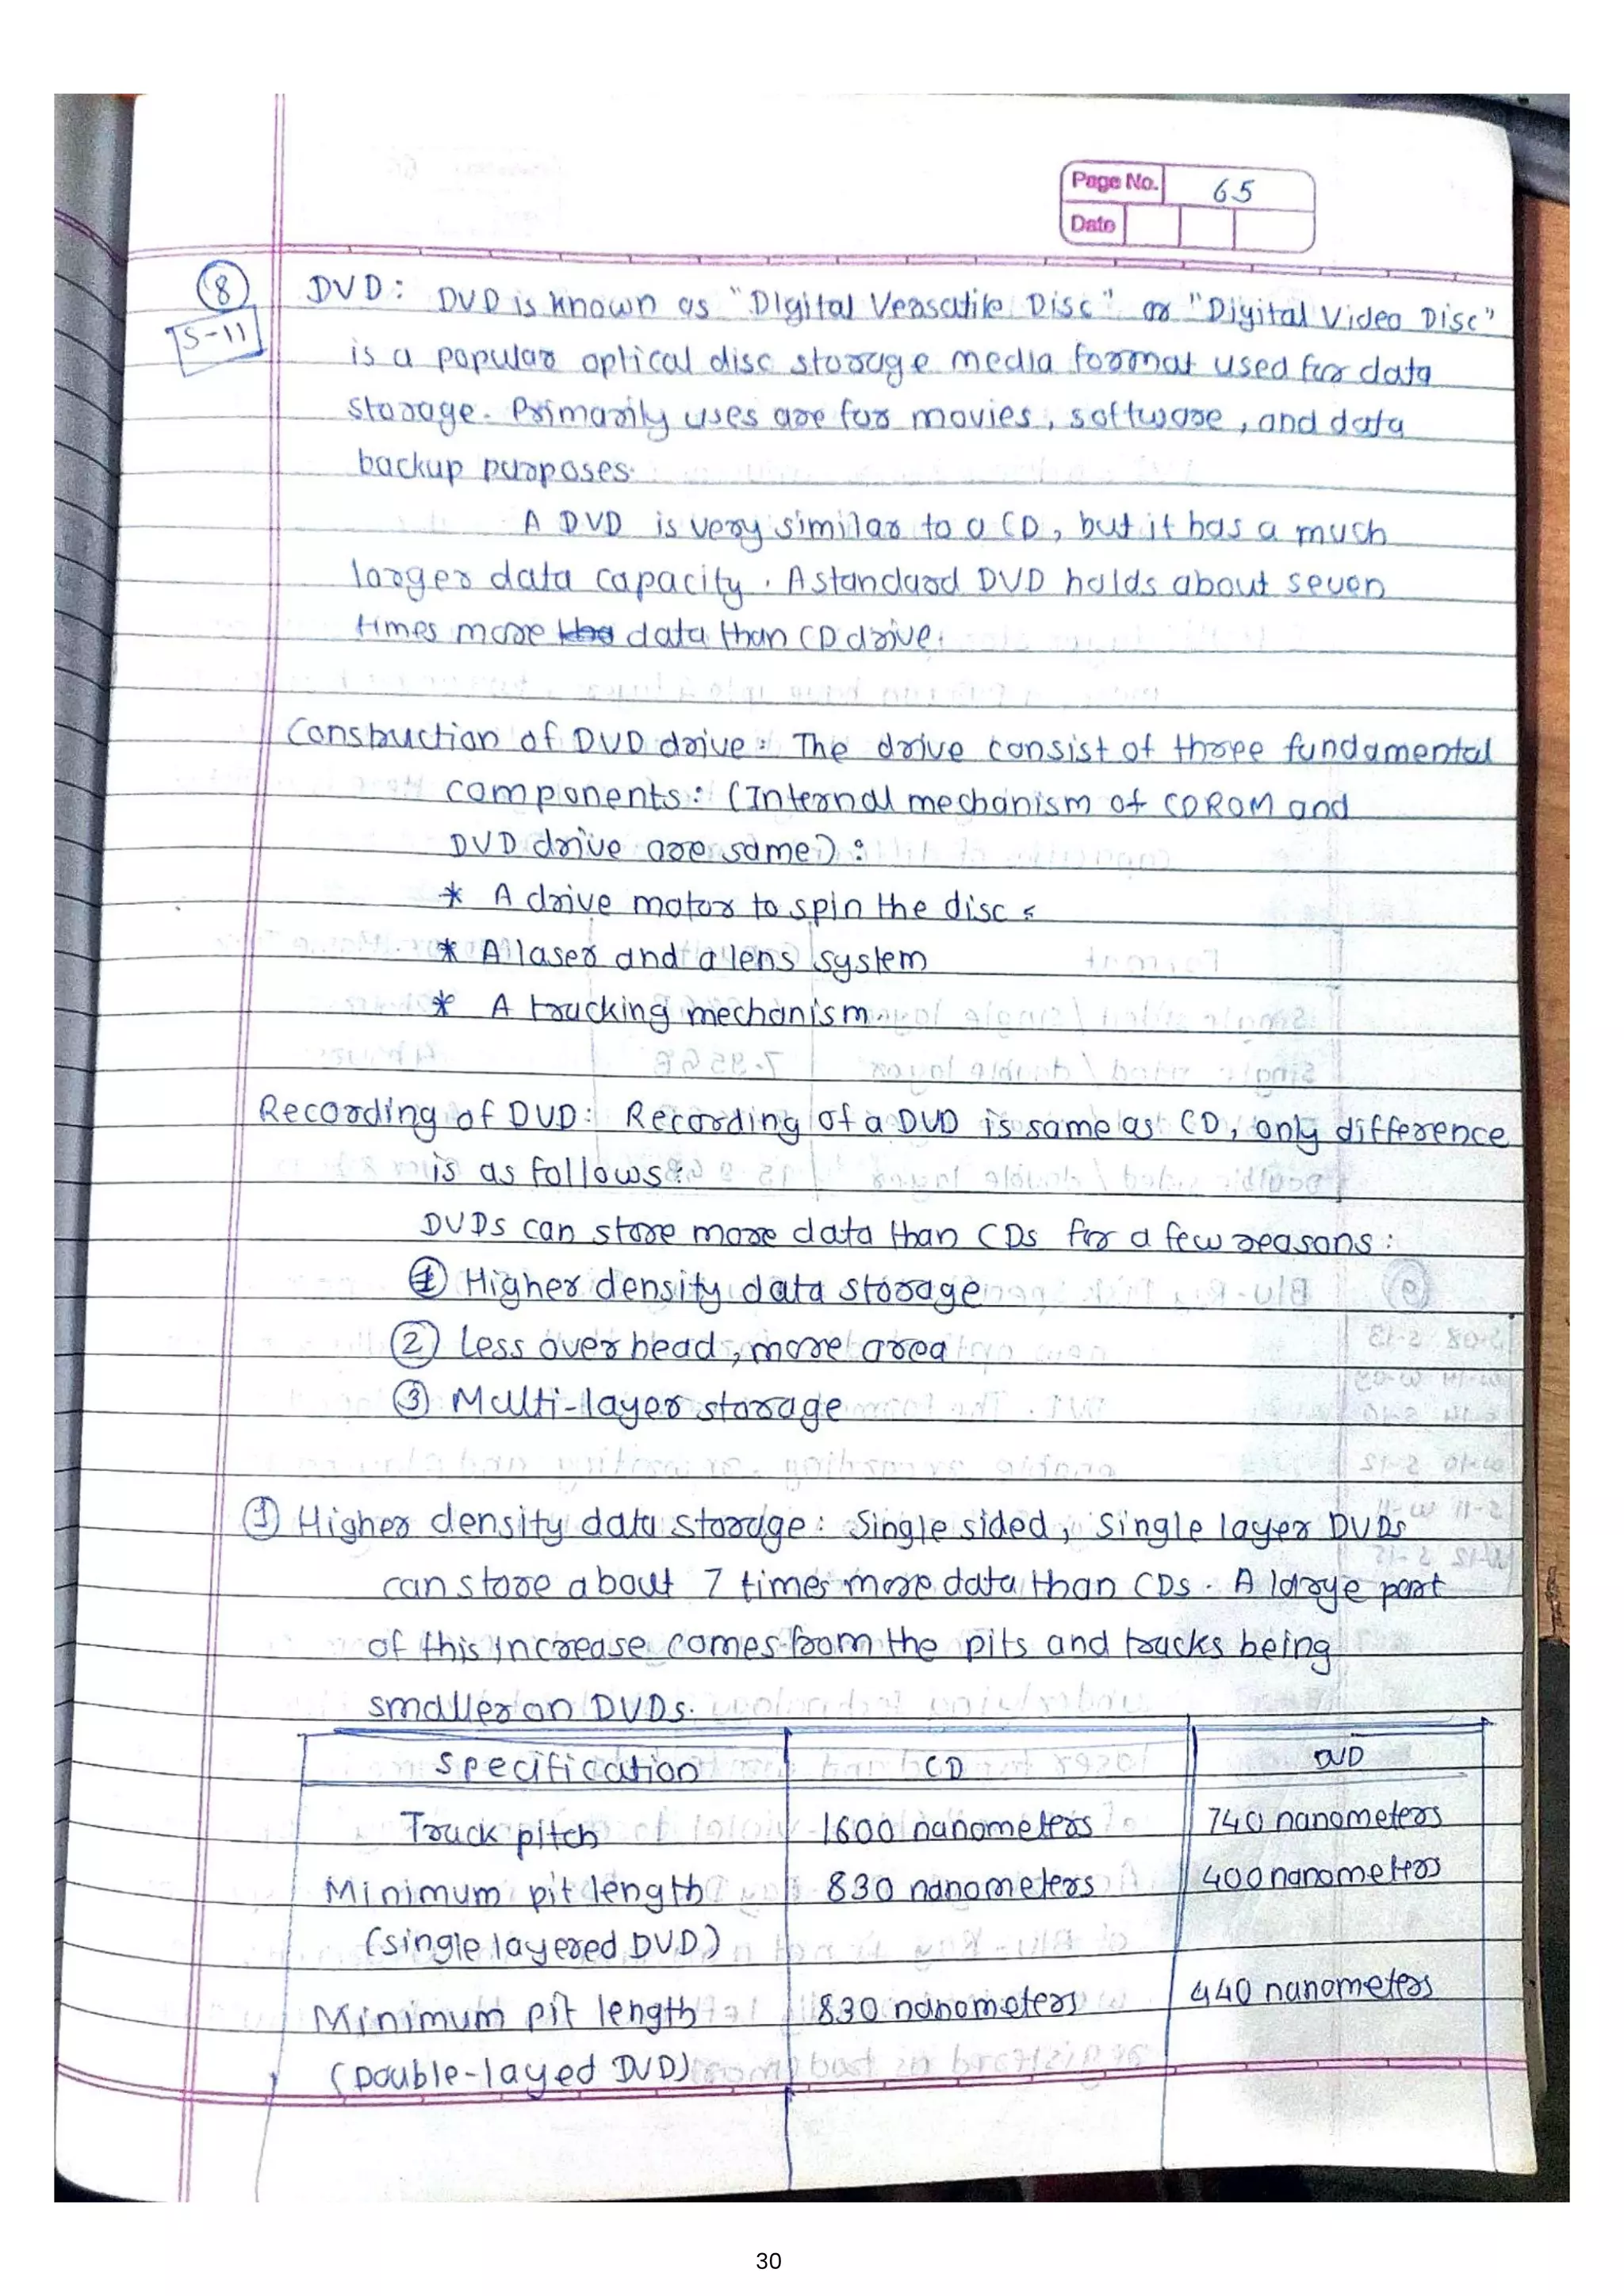 Page No. 65
Date
8 DVD: DVD is known as "Digital Versatile Disc" or "Digital Video Disc"
S-11
is a popular optical disc storage media format used for data
storage. Primarily uses are for movies, software, and data
backup purposes.
A DVD is very similar to a CD, but it has a much
larger data capacity. A standard DVD holds about seven
times more data than CD drive.
Construction of DVD drive: The drive consist of three fundamental
components: (Internal mechanism of CDROM and
DVD drive are same):
* A drive motor to spin the disc
* A laser and a lens system
* A tracking mechanism
Recording of DVD: Recording of a DVD is same as CD, only difference
is as follows:
DVDs can store more data than CDs for a few reasons:
1 Higher density data storage
2 Less over head, more area
3 Multi-layer storage
1 Higher density data storage: Single sided, single layer DVDs
can store about 7 times more data than CDs. A large part
of this increase comes from the pits and tracks being
smaller on DVDs.
Specification CD DVD
Track pitch 1600 nanometers 740 nanometers
Minimum pit length 830 nanometers 400 nanometers
(single layered DVD)
Minimum pit length 830 nanometers 440 nanometers
(Double-layed DVD)
30